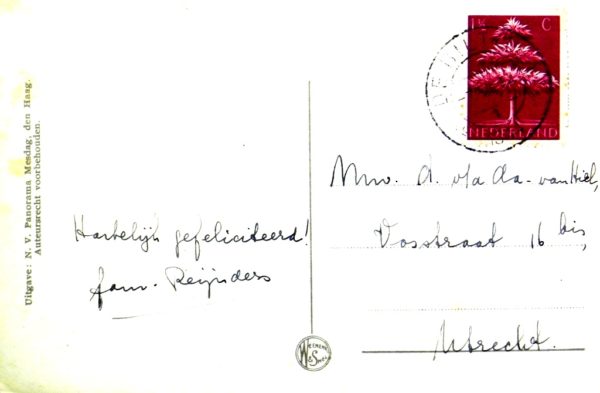 Uitgave: N. V. Panorama Mesdag, den Haag.
Auteursrecht voorbehouden.
Hartelijk gefeliciteerd!
fam. Reijnders
1½ C
NEDERLAND
Mw. A. v/d
Vosstraat 16 bis,
Utrecht.